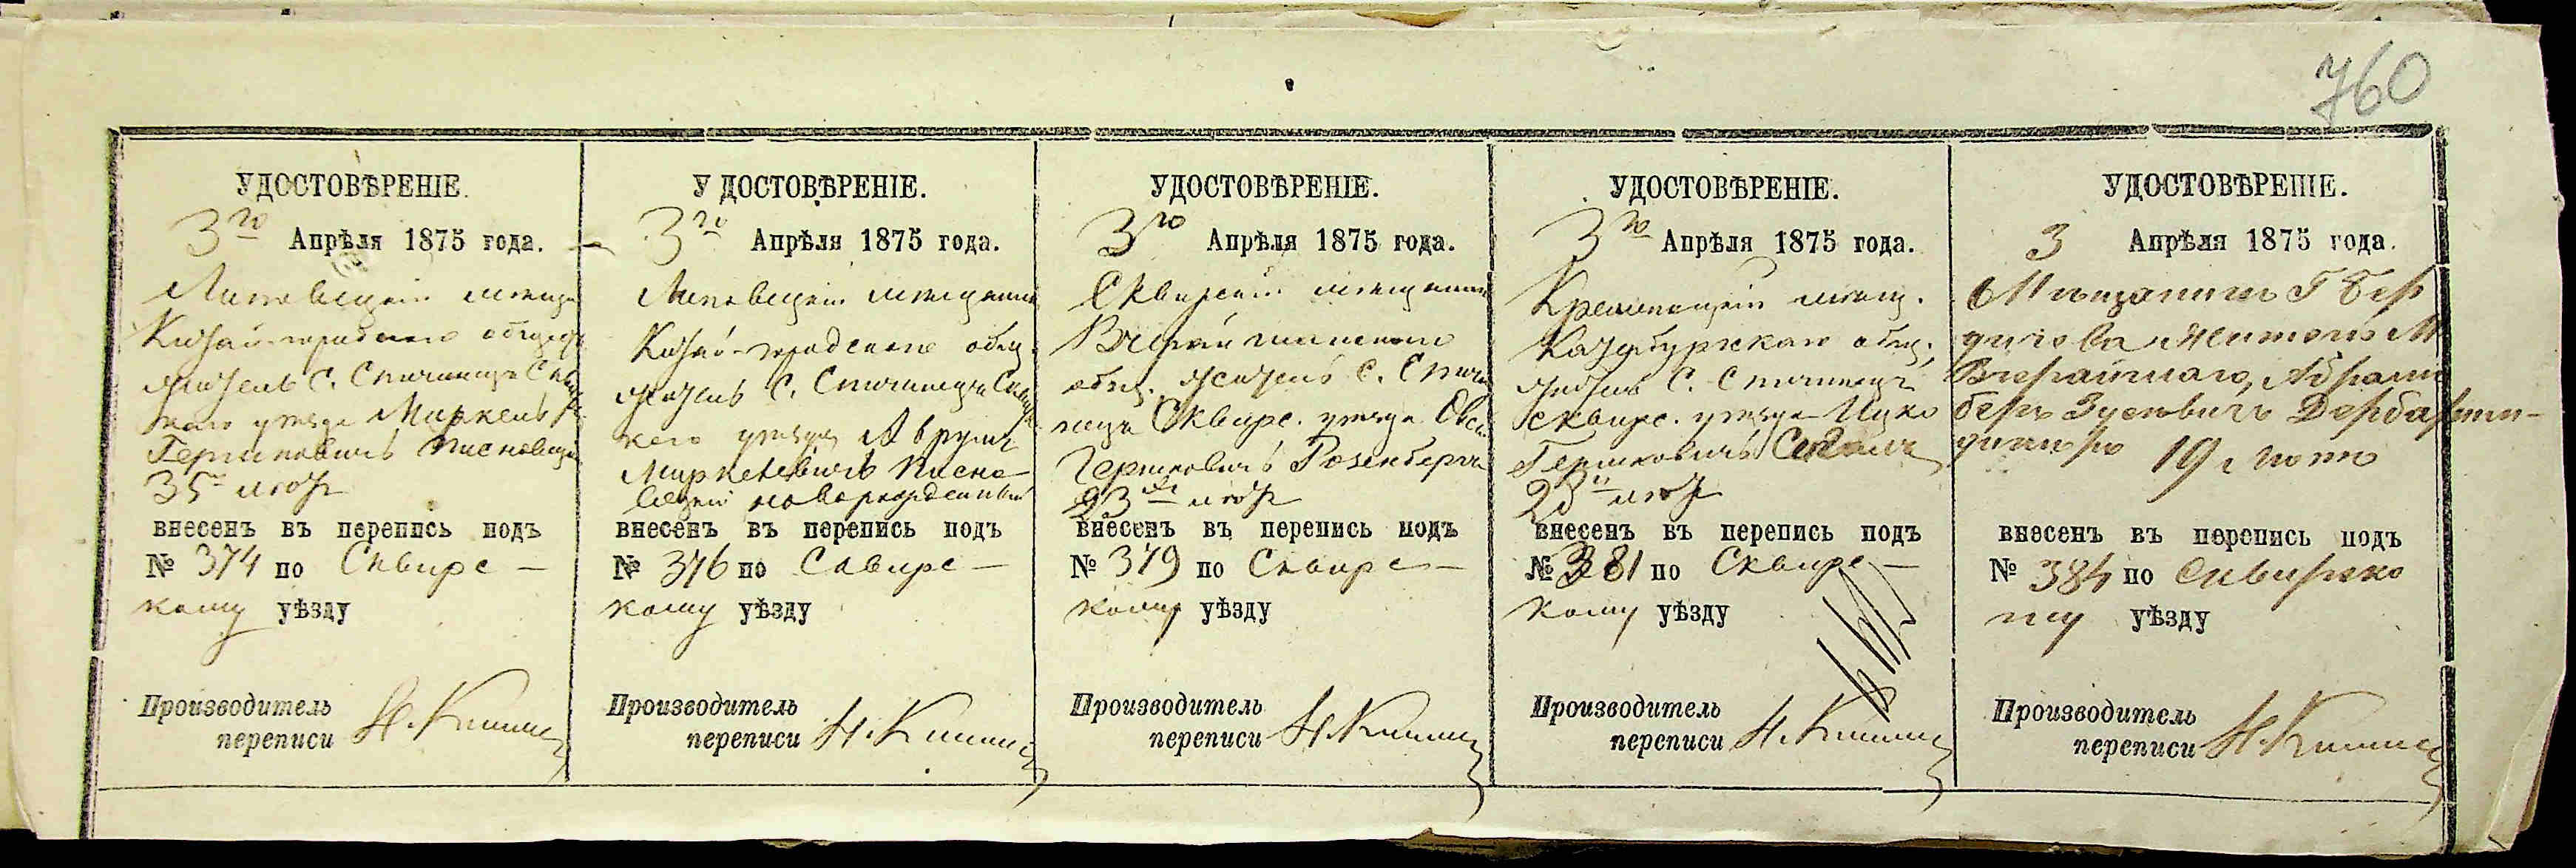 760
УДОСТОВѢРЕНІЕ.
3го Апрѣля 1875 года.
Липовецкій мещан
Китай-городскаго общес
житель С. Спичинец Скви
каго уезда Миркель
Гершковичъ Писковецкій
35 лет
внесенъ въ перепись подъ
№ 374 по Сквирс—
кому уѣзду
Производитель
переписи Н. Кишин
УДОСТОВѢРЕНІЕ.
3го Апрѣля 1875 года.
Липовецкій мещанин
Китай-городскаго общ.
житель С. Спичинец Сквирс
каго уезда Аврумъ
Миркелевичъ Писко-
вецкій новорожденный
внесенъ въ перепись подъ
№ 376 по Сквирс—
кому уѣзду
Производитель
переписи Н. Кишин
УДОСТОВѢРЕНІЕ.
3го Апрѣля 1875 года.
Сквирскій мещанин
Вчерайшанскаго
общ. житель С. Спичи
нецъ Сквирс. уезда
Гершковичъ Розенбергъ
23 лет
внесенъ въ перепись подъ
№ 379 по Сквирс—
кому уѣзду
Производитель
переписи Н. Кишин
УДОСТОВѢРЕНІЕ.
3го Апрѣля 1875 года.
Кременецкій мещ.
общ.
житель С. Спичинецъ
Сквирс. уезда Ицко
Гершковичъ
лет
внесенъ въ перепись подъ
№ 381 по Сквирс—
кому уѣзду
Производитель
переписи Н. Кишин
УДОСТОВѢРЕНІЕ.
3 Апрѣля 1875 года.
Мѣщанинъ Г Бер
дичева житель М
Вчерайшаго, Абрам
беръ Зусевичъ
19 лѣтъ
внесенъ въ перепись подъ
№ 384 по Сквирско
му уѣзду
Производитель
переписи Н. Кишин